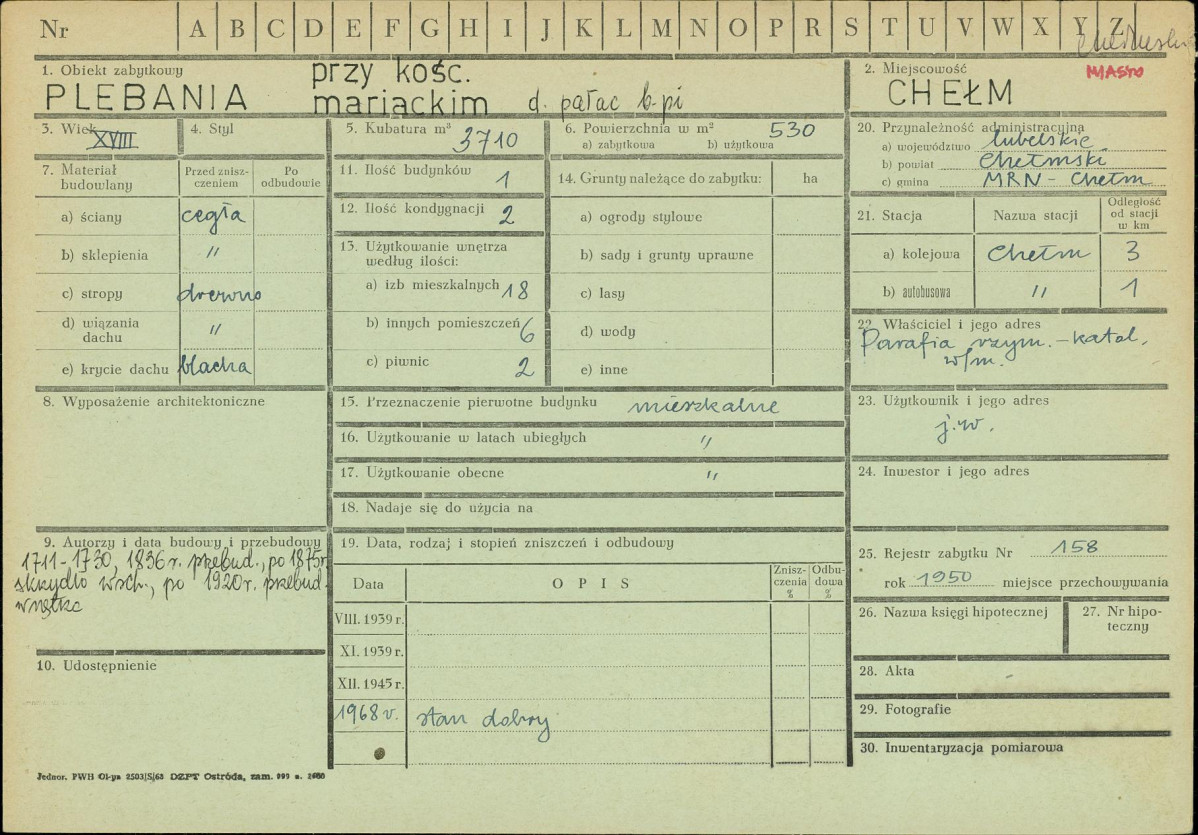 Nr A B C D E F G H I J K L M N O P R S T U V W X Y Z
MIASTO
1. Obiekt zabytkowy
PLEBANIA
przy kośc.
mariackim d. pałac b-pi
2. Miejscowość
CHEŁM
3. Wiek XVIII
4. Styl
5. Kubatura m³ 3710
6. Powierzchnia w m² 530
a) zabytkowa b) użytkowa
7. Materiał budowlany
Przed znisz-
czeniem
Po
odbudowie
a) ściany cegła
b) sklepienia "
c) stropy drewno
d) wiązania
dachu "
e) krycie dachu blacha
8. Wyposażenie architektoniczne
9. Autorzy i data budowy i przebudowy
1711-1730, 1836 r. przebud., po 1875 r.
skrzydło wsch., po 1920 r. przebud.
wnętrza
10. Udostępnienie
11. Ilość budynków 1
12. Ilość kondygnacji 2
13. Użytkowanie wnętrza
według ilości:
a) izb mieszkalnych 18
b) innych pomieszczeń 6
c) piwnic 2
14. Grunty należące do zabytku: ha
a) ogrody stylowe
b) sady i grunty uprawne
c) lasy
d) wody
e) inne
15. Przeznaczenie pierwotne budynku mieszkalne
16. Użytkowanie w latach ubiegłych "
17. Użytkowanie obecne "
18. Nadaje się do użycia na
19. Data, rodzaj i stopień zniszczeń i odbudowy
Data OPIS
Znisz-
czenia
%
Odbu-
dowa
%
VIII. 1939 r.
XI. 1939 r.
XII. 1945 r.
1968 r. stan dobry
20. Przynależność administracyjna
a) województwo lubelskie
b) powiat Chełmski
c) gmina MRN - Chełm
21. Stacja Nazwa stacji
Odległość
od stacji
w km
a) kolejowa Chełm 3
b) autobusowa " 1
22. Właściciel i jego adres
Parafia rzym.-katol.
w/m.
23. Użytkownik i jego adres
j.w.
24. Inwestor i jego adres
25. Rejestr zabytku Nr 158
rok 1950 miejsce przechowywania
26. Nazwa księgi hipotecznej
27. Nr hipo-
teczny
28. Akta
29. Fotografie
30. Inwentaryzacja pomiarowa
Jednor. PWH Ol-yn 2503/S/68 DZPT Ostróda, zam. 999 n.